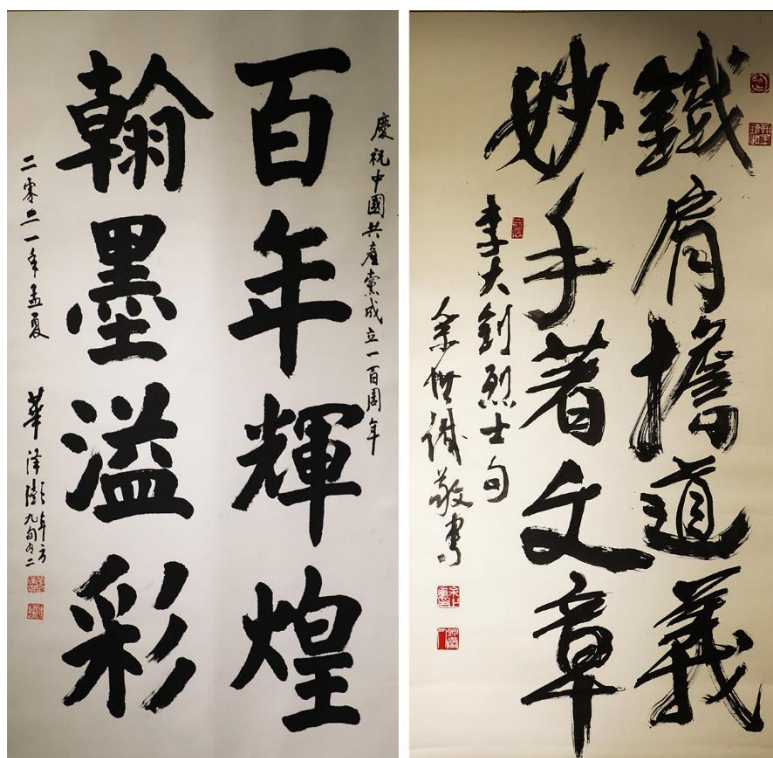 慶祝中國共產黨成立一百周年
百年輝煌
翰墨溢彩
二零二一年孟夏
華澤
九旬
鐵肩擔道義
妙手著文章
李大釗烈士句
余世誠敬書